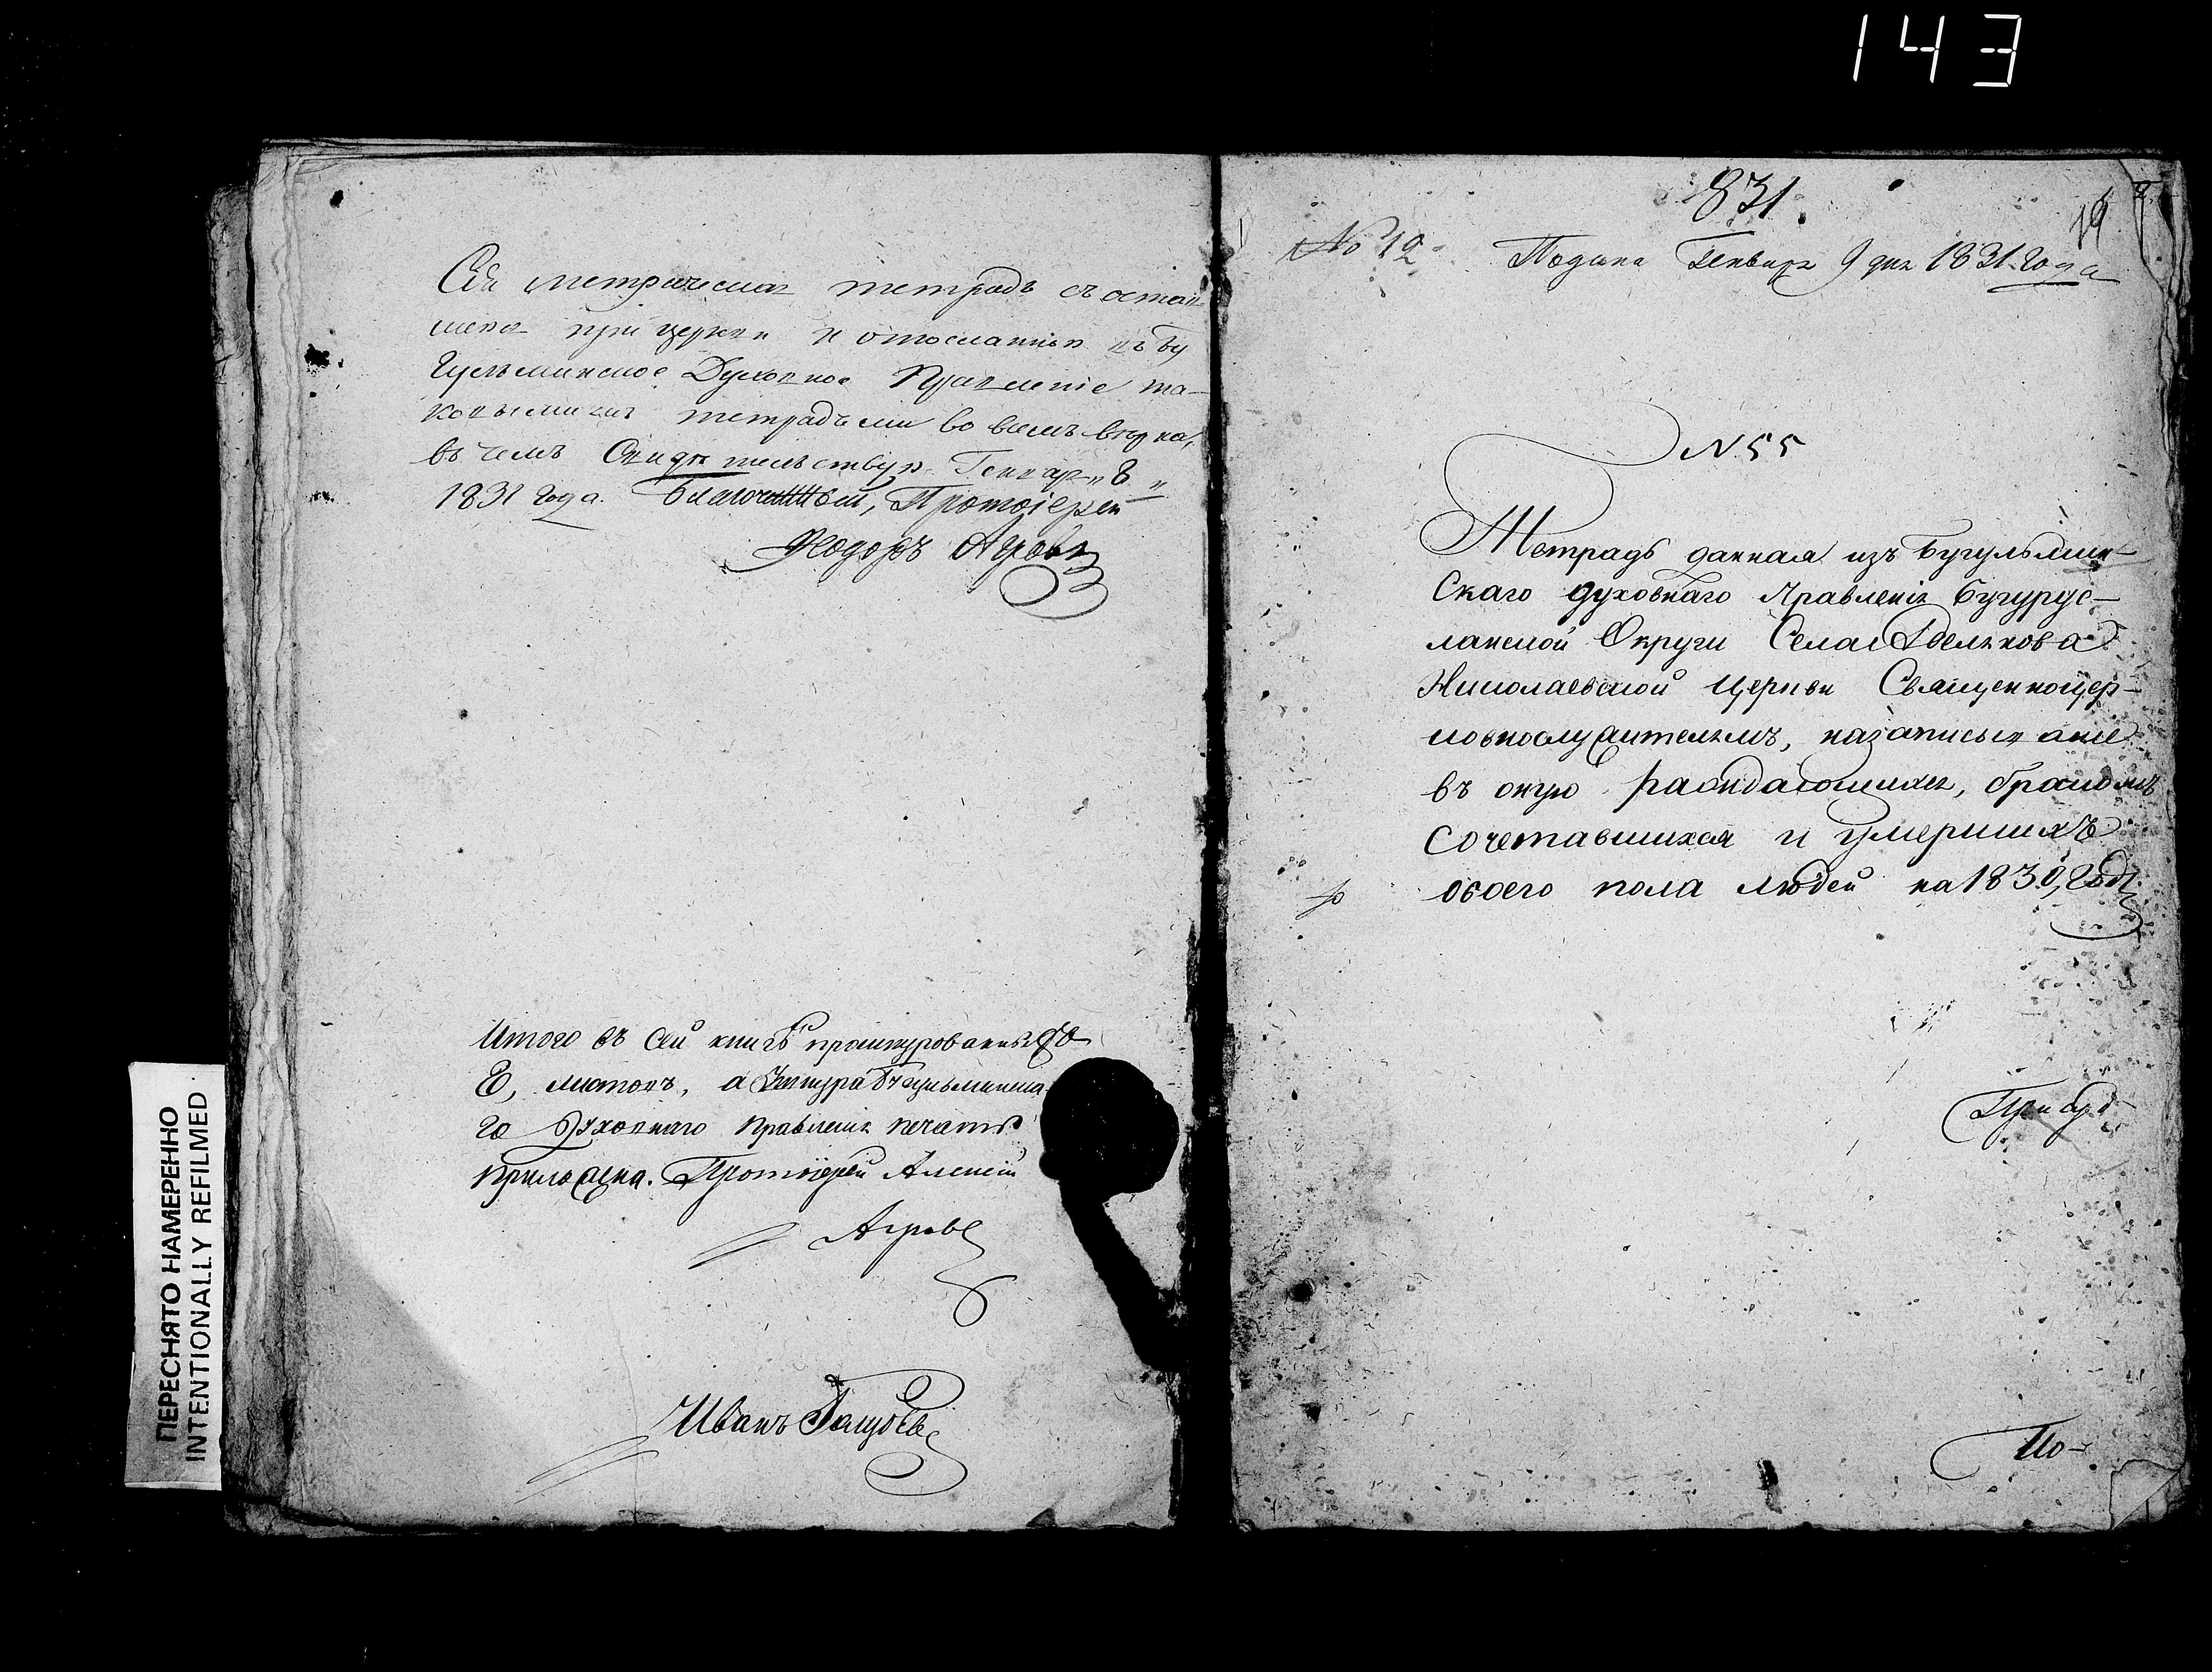 143
Сія метрическая тетрадь съ остав-
шею при церкви и отосланною въ Бу
гульминское Духовное Правленіе та-
ковыми тетрадьми во всемъ вѣрна,
въ чемъ Свидѣтельствую Генваря 8
1831 года. Благочинный, Протоіерей
Ѳеодоръ
Итого въ сей книгѣ прошнурованныхъ
8, листовъ, а Шнура Бугульминска
го Духовнаго Правленія печать
приложена. Протоіерей Алексій
Иванъ
ПЕРЕСНЯТО НАМЕРЕННО
INTENTIONALLY REFILMED
831
№ 12 Подана Генваря 9 дня 1831 года
19
N 55
Тетрадь данная изъ Бугульмин-
Скаго духовнаго Правленія Бугурус-
ланской Округи Села
Николаевской Церкви Священноцер-
ковнослужителямъ, на записыванїе
въ оную раждающихся, бракомъ
Сочетавшихся и умершихъ
обоего пола людей на 1830, Годъ.
По-